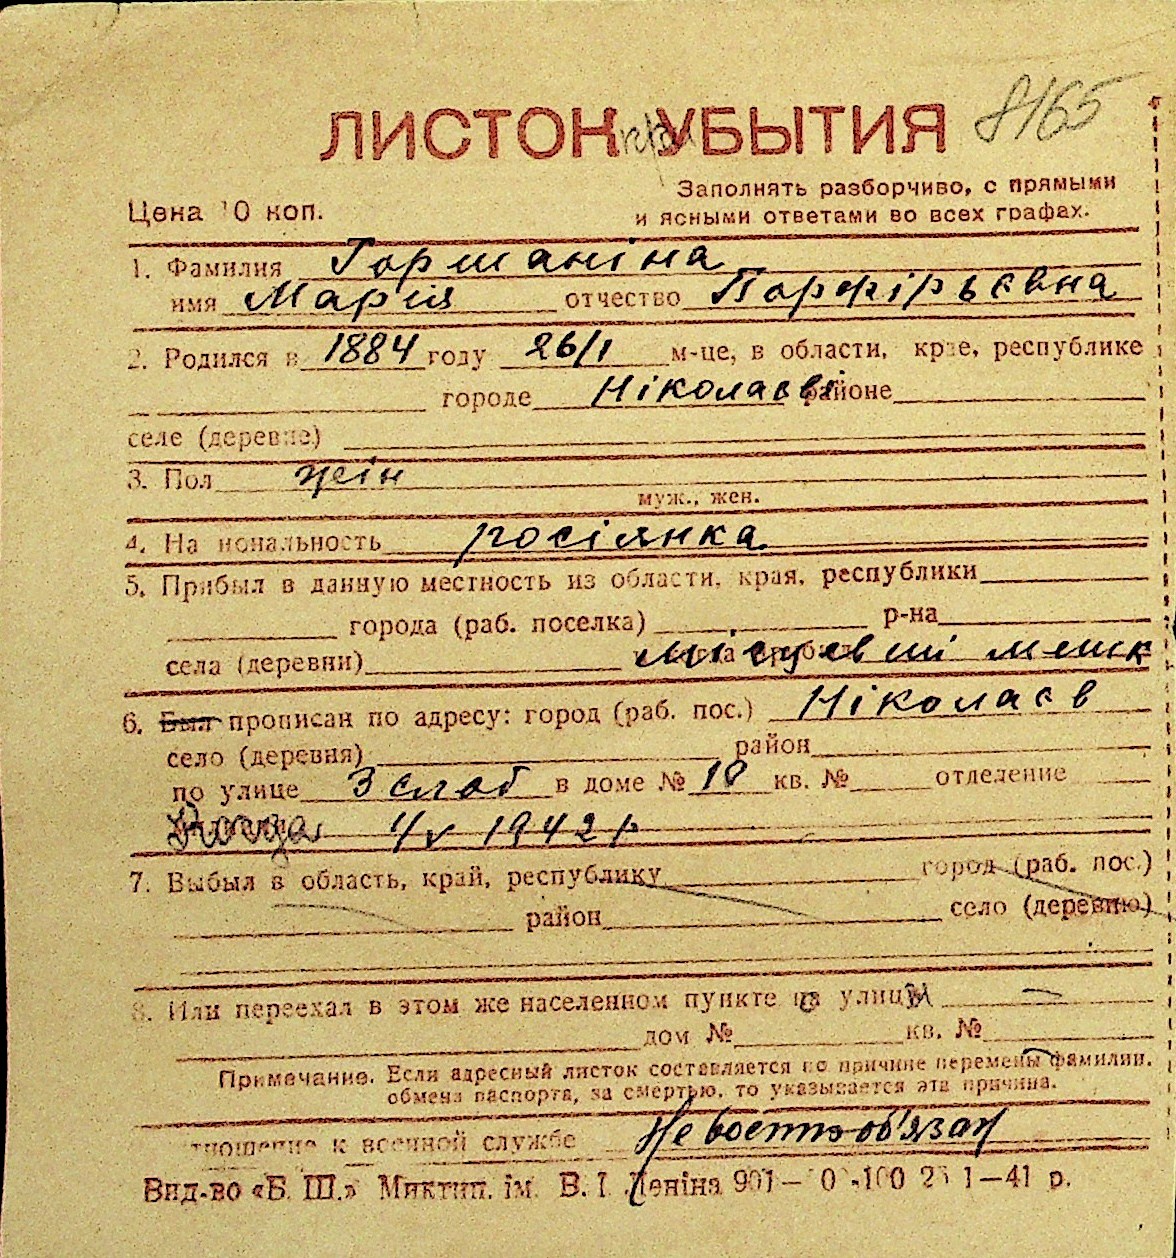 8165
ЛИСТОК УБЫТИЯ
Заполнять разборчиво, с прямыми
Цена 10 коп.
и ясными ответами во всех графах.
1. Фамилия Горшаніна
имя Марія отчество Порфірьєвна
2. Родился в 1884 году 26/1 м-це, в области, крае, республике
городе Ніколаєві районе
селе (деревне)
3. Пол жін
муж., жен.
4. Национальность росіянка
5. Прибыл в данную местность из области, края, республики
города (раб. поселка) р-на
села (деревни) місцевий мешк
6. Был прописан по адресу: город (раб. пос.) Ніколаєв
село (деревня) район
по улице 3 слоб в доме № 10 кв. № отделение
Когда 4/V 1942 р
7. Выбыл в область, край, республику город (раб. пос.)
район село (деревню)
8. Или переехал в этом же населенном пункте с улицы
дом № кв. №
Примечание. Если адресный листок составляется по причине перемены фамилии,
обмена паспорта, за смертью, то указывается эта причина.
тношение к военной службе Не военно-об'язан
Вид-во «Б. Ш.» Миктип. ім. В. І. Леніна